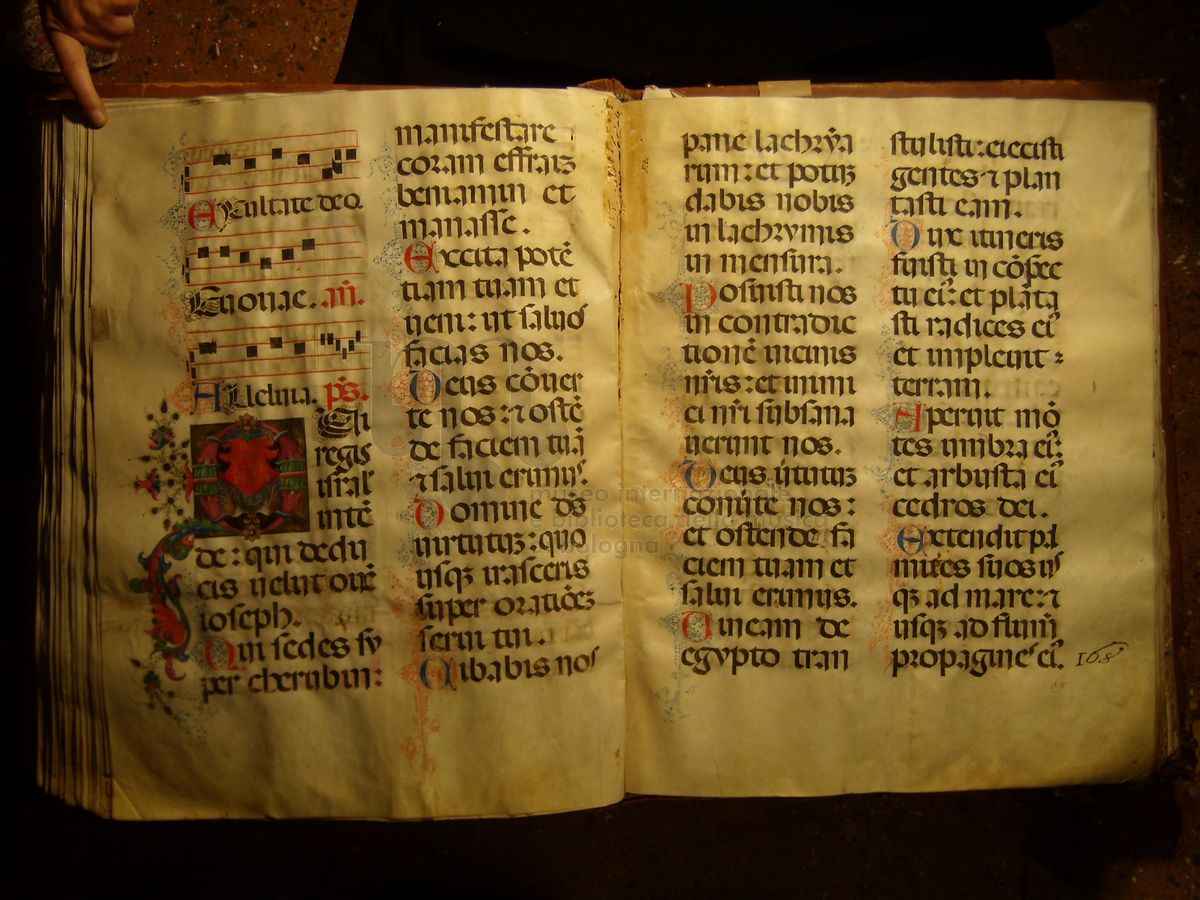 Exultate deo.
Euouae. añ.
Alleluia. ps.
Qui
regis
israł
intē
de: qui dedu
cis uelut ouē
ioseph.
Qui sedes su
per cherubin:
manifestare
coram effraiꝫ
beniamin et
manasse.
Excita potē
tiam tuam et
ueni: ut saluos
facias nos.
Deus cōuer
te nos: ⁊ ostē
de faciem tuā
⁊ salui erimus.
Domine ds
uirtutuꝫ: quo
usqꝫ irasceris
super oratiōeꝫ
serui tui.
Cibabis nos
pane lachrỹa
rum: et potuꝫ
dabis nobis
in lachrymis
in mensura.
Posuisti nos
in contradic
tionē uicinis
nr̄is: et inimi
ci nr̄i subsana
uerunt nos.
Deus ũtutuꝫ
conūte nos:
et ostende fa
ciem tuam et
salui erimus.
Uineam de
egypto tran
stulisti: eiecisti
gentes ⁊ plan
tasti eam.
Dux itineris
fuisti in cōspec
tu eiꝰ: et plāta
sti radices eiꝰ
et impleuit
terram.
Aperuit mō
tes umbra eiꝰ:
et arbusta eiꝰ
cedros dei.
Extendit pal
mites suos us
qꝫ ad mare: ⁊
usqꝫ ad flum̄
propagines eiꝰ.
168
museo internazionale
e biblioteca della musica
bologna